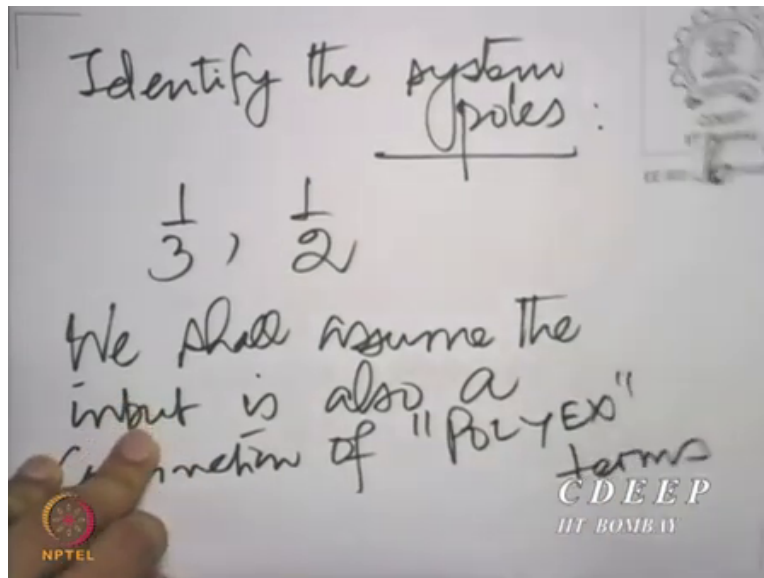 Identify the system
poles:
1/3, 1/2
We shall assume the
input is also a
of "POLYEX"
terms
CDEEP
IIT BOMBAY
NPTEL